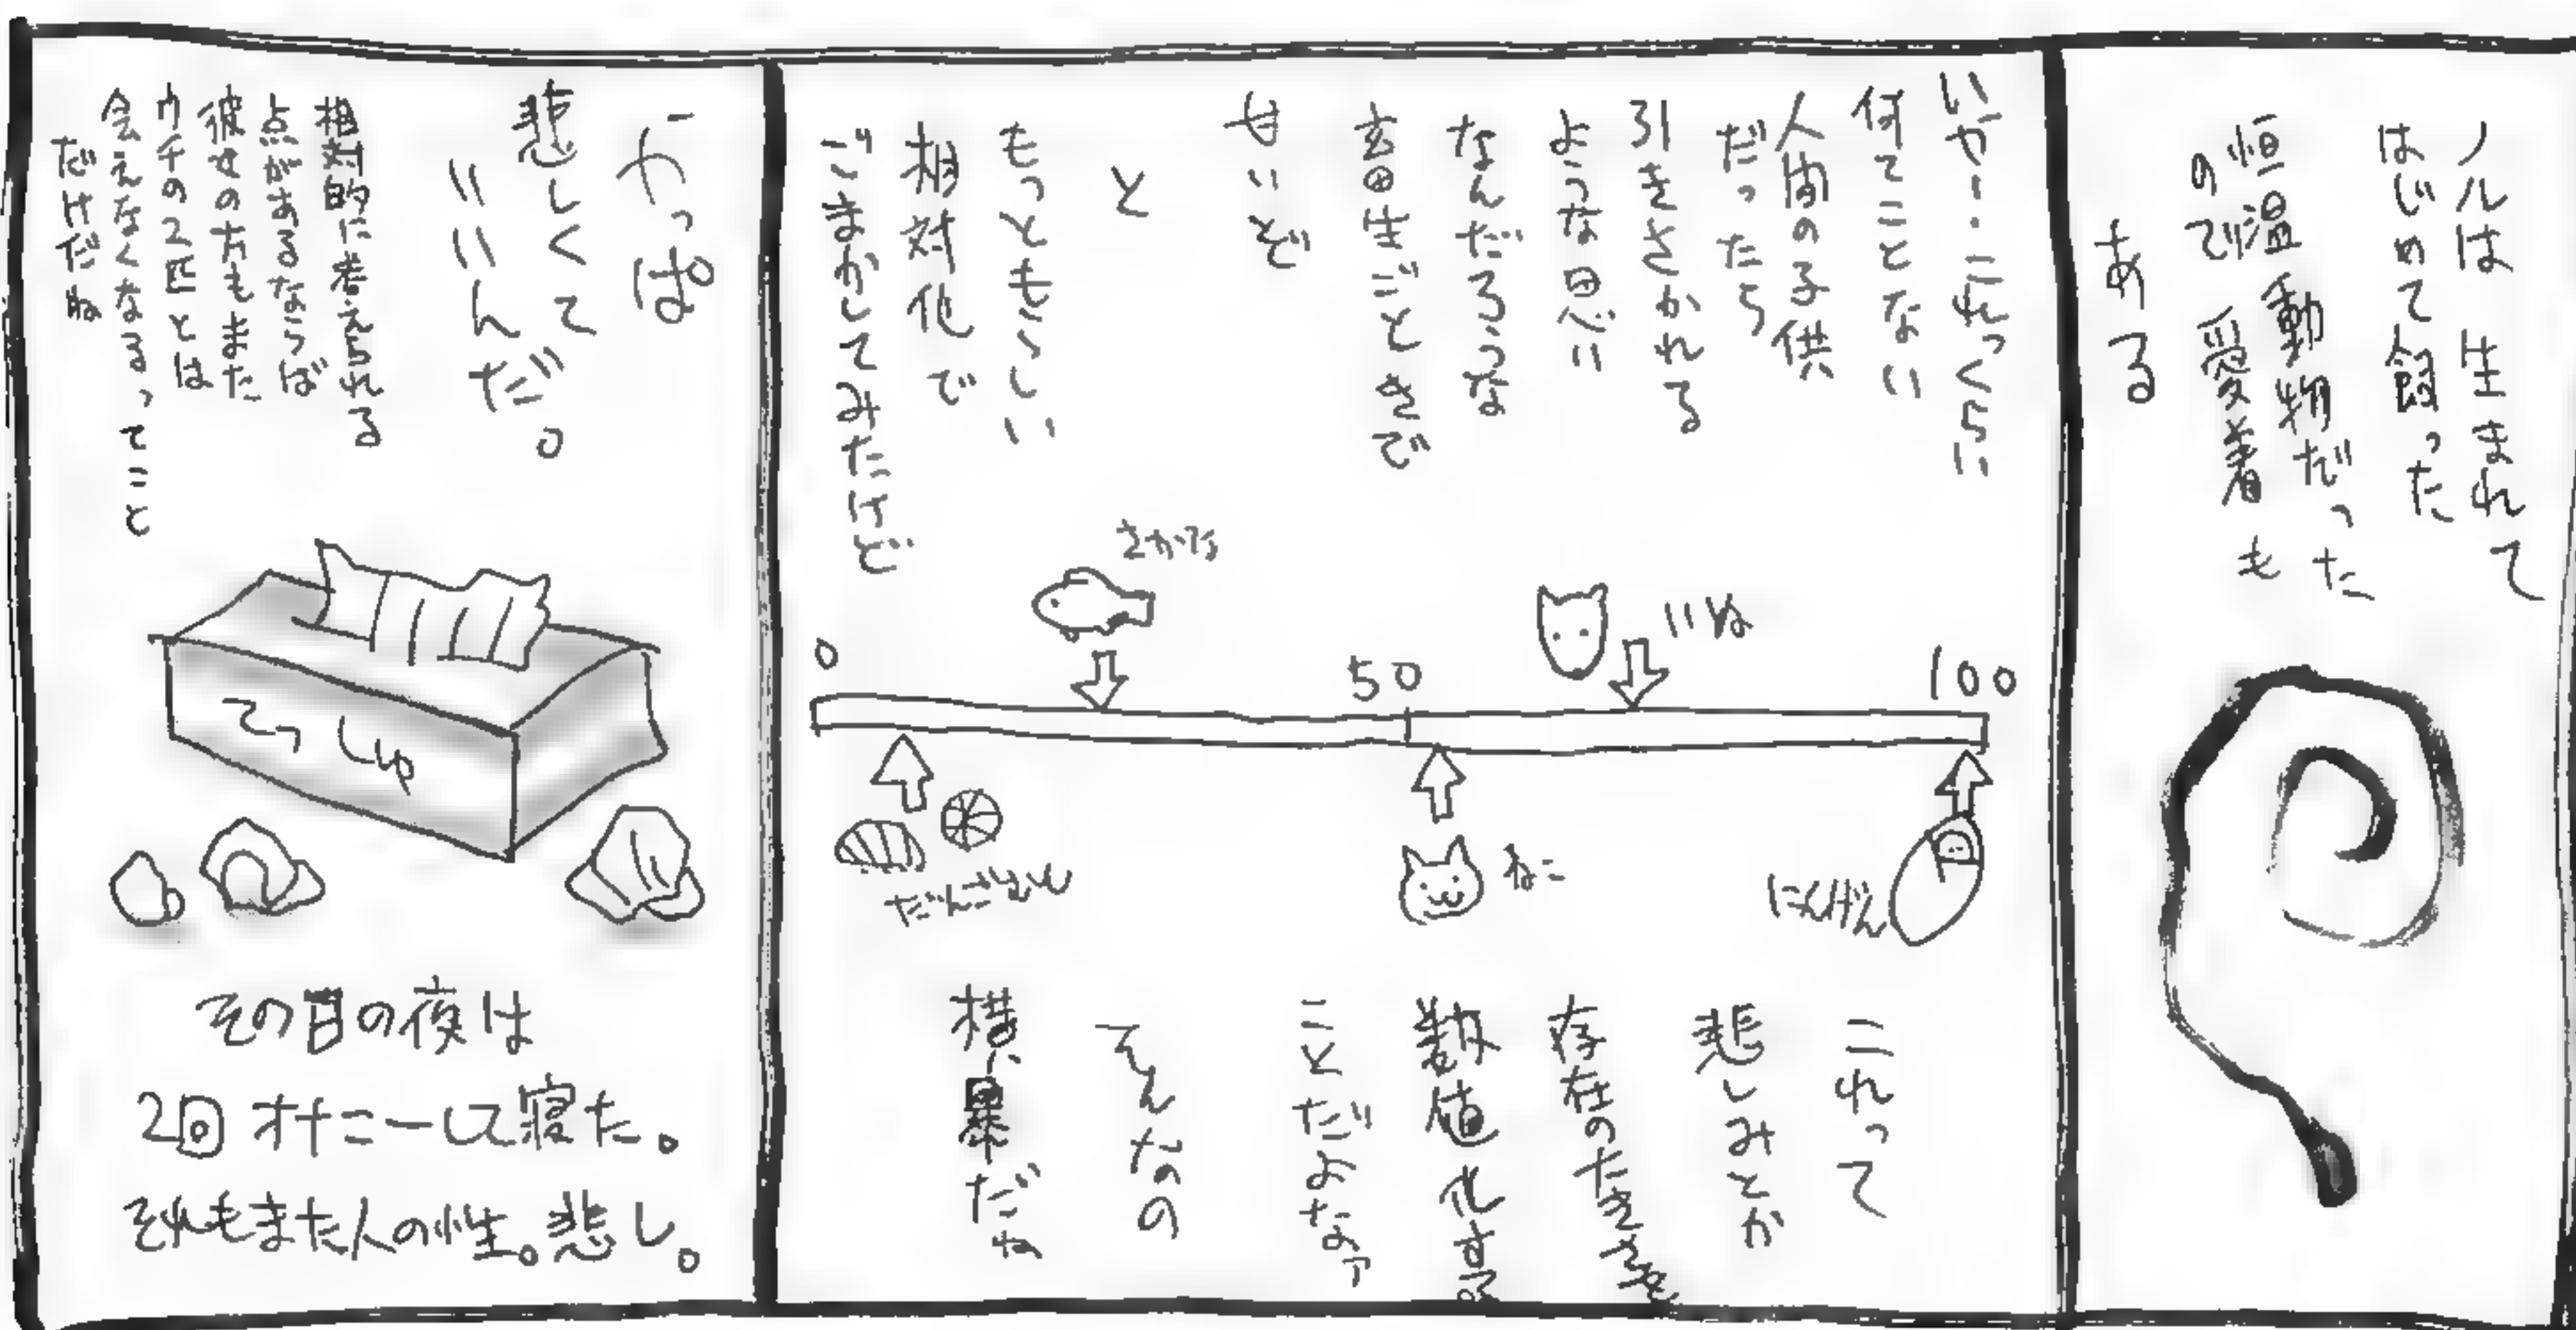 ノルは 生まれて
はじめて飼った
恒温動物だった
ので 愛着も
ある
いや・・これっくらい
何てことない
人間の子供
だったら
引きさかれる
ような思い
なんだろうな
せいぜ
と
もっともらしい
相対化で
ごまかしてみたけど
さかな
いぬ
0
50
100
だんごむし
ねこ
にんげん
これって
悲しみとか
存在の大きさを
数値化する
ことだよなァ
そんなの
横暴だね
やっぱ
悲しくて
いいんだ。
相対的に考えられる
点があるならば
彼女の方もまた
ウチの2匹とは
会えなくなるってこと
だけだね
てっしゅ
その日の夜は
2回オナニーして寝た。
それもまた人の性。悲し。